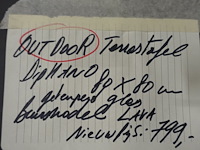 OUTDOOR Terrastafel
DipHANO 80 X 80 cm
gehard glas
bausmodel LAVA
Nieuwprijs: 799,-